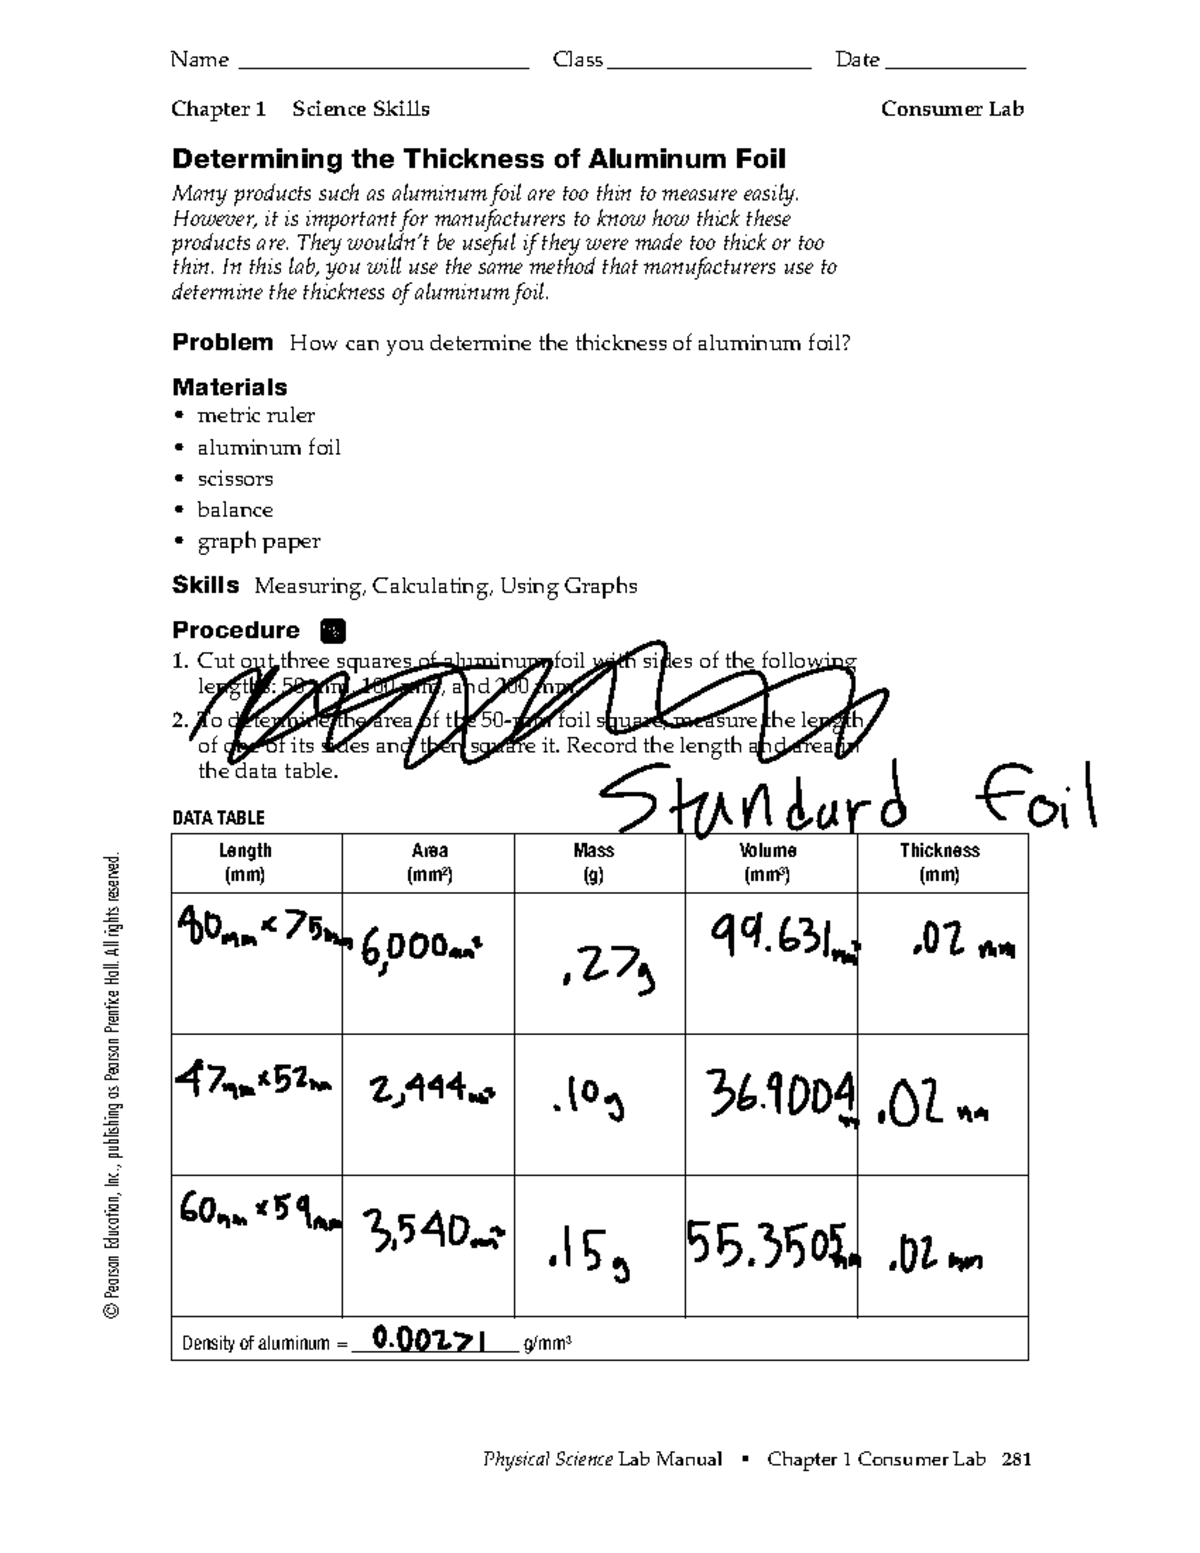 Name Class Date
Chapter 1 Science Skills Consumer Lab
Determining the Thickness of Aluminum Foil
Many products such as aluminum foil are too thin to measure easily.
However, it is important for manufacturers to know how thick these
products are. They wouldn't be useful if they were made too thick or too
thin. In this lab, you will use the same method that manufacturers use to
determine the thickness of aluminum foil.
Problem How can you determine the thickness of aluminum foil?
Materials
• metric ruler
• aluminum foil
• scissors
• balance
• graph paper
Skills Measuring, Calculating, Using Graphs
Procedure
1. Cut out three squares of aluminum foil with sides of the following
lengths: 50 mm, 100 mm, and 200 mm.
2. To determine the area of the 50-mm foil square, measure the length
of one of its sides and then square it. Record the length and area in
the data table.
Standard Foil
DATA TABLE
Length (mm) Area (mm²) Mass (g) Volume (mm³) Thickness (mm)
80mm x 75mm 6,000mm² .27g 99.631mm³ .02 mm
47mm x 52mm 2,444mm² .10g 36.9004 .02 mm
60mm x 59mm 3,540mm² .15g 55.3505mm .02 mm
Density of aluminum = 0.00271 g/mm³
© Pearson Education, Inc., publishing as Pearson Prentice Hall. All rights reserved.
Physical Science Lab Manual ▪ Chapter 1 Consumer Lab 281